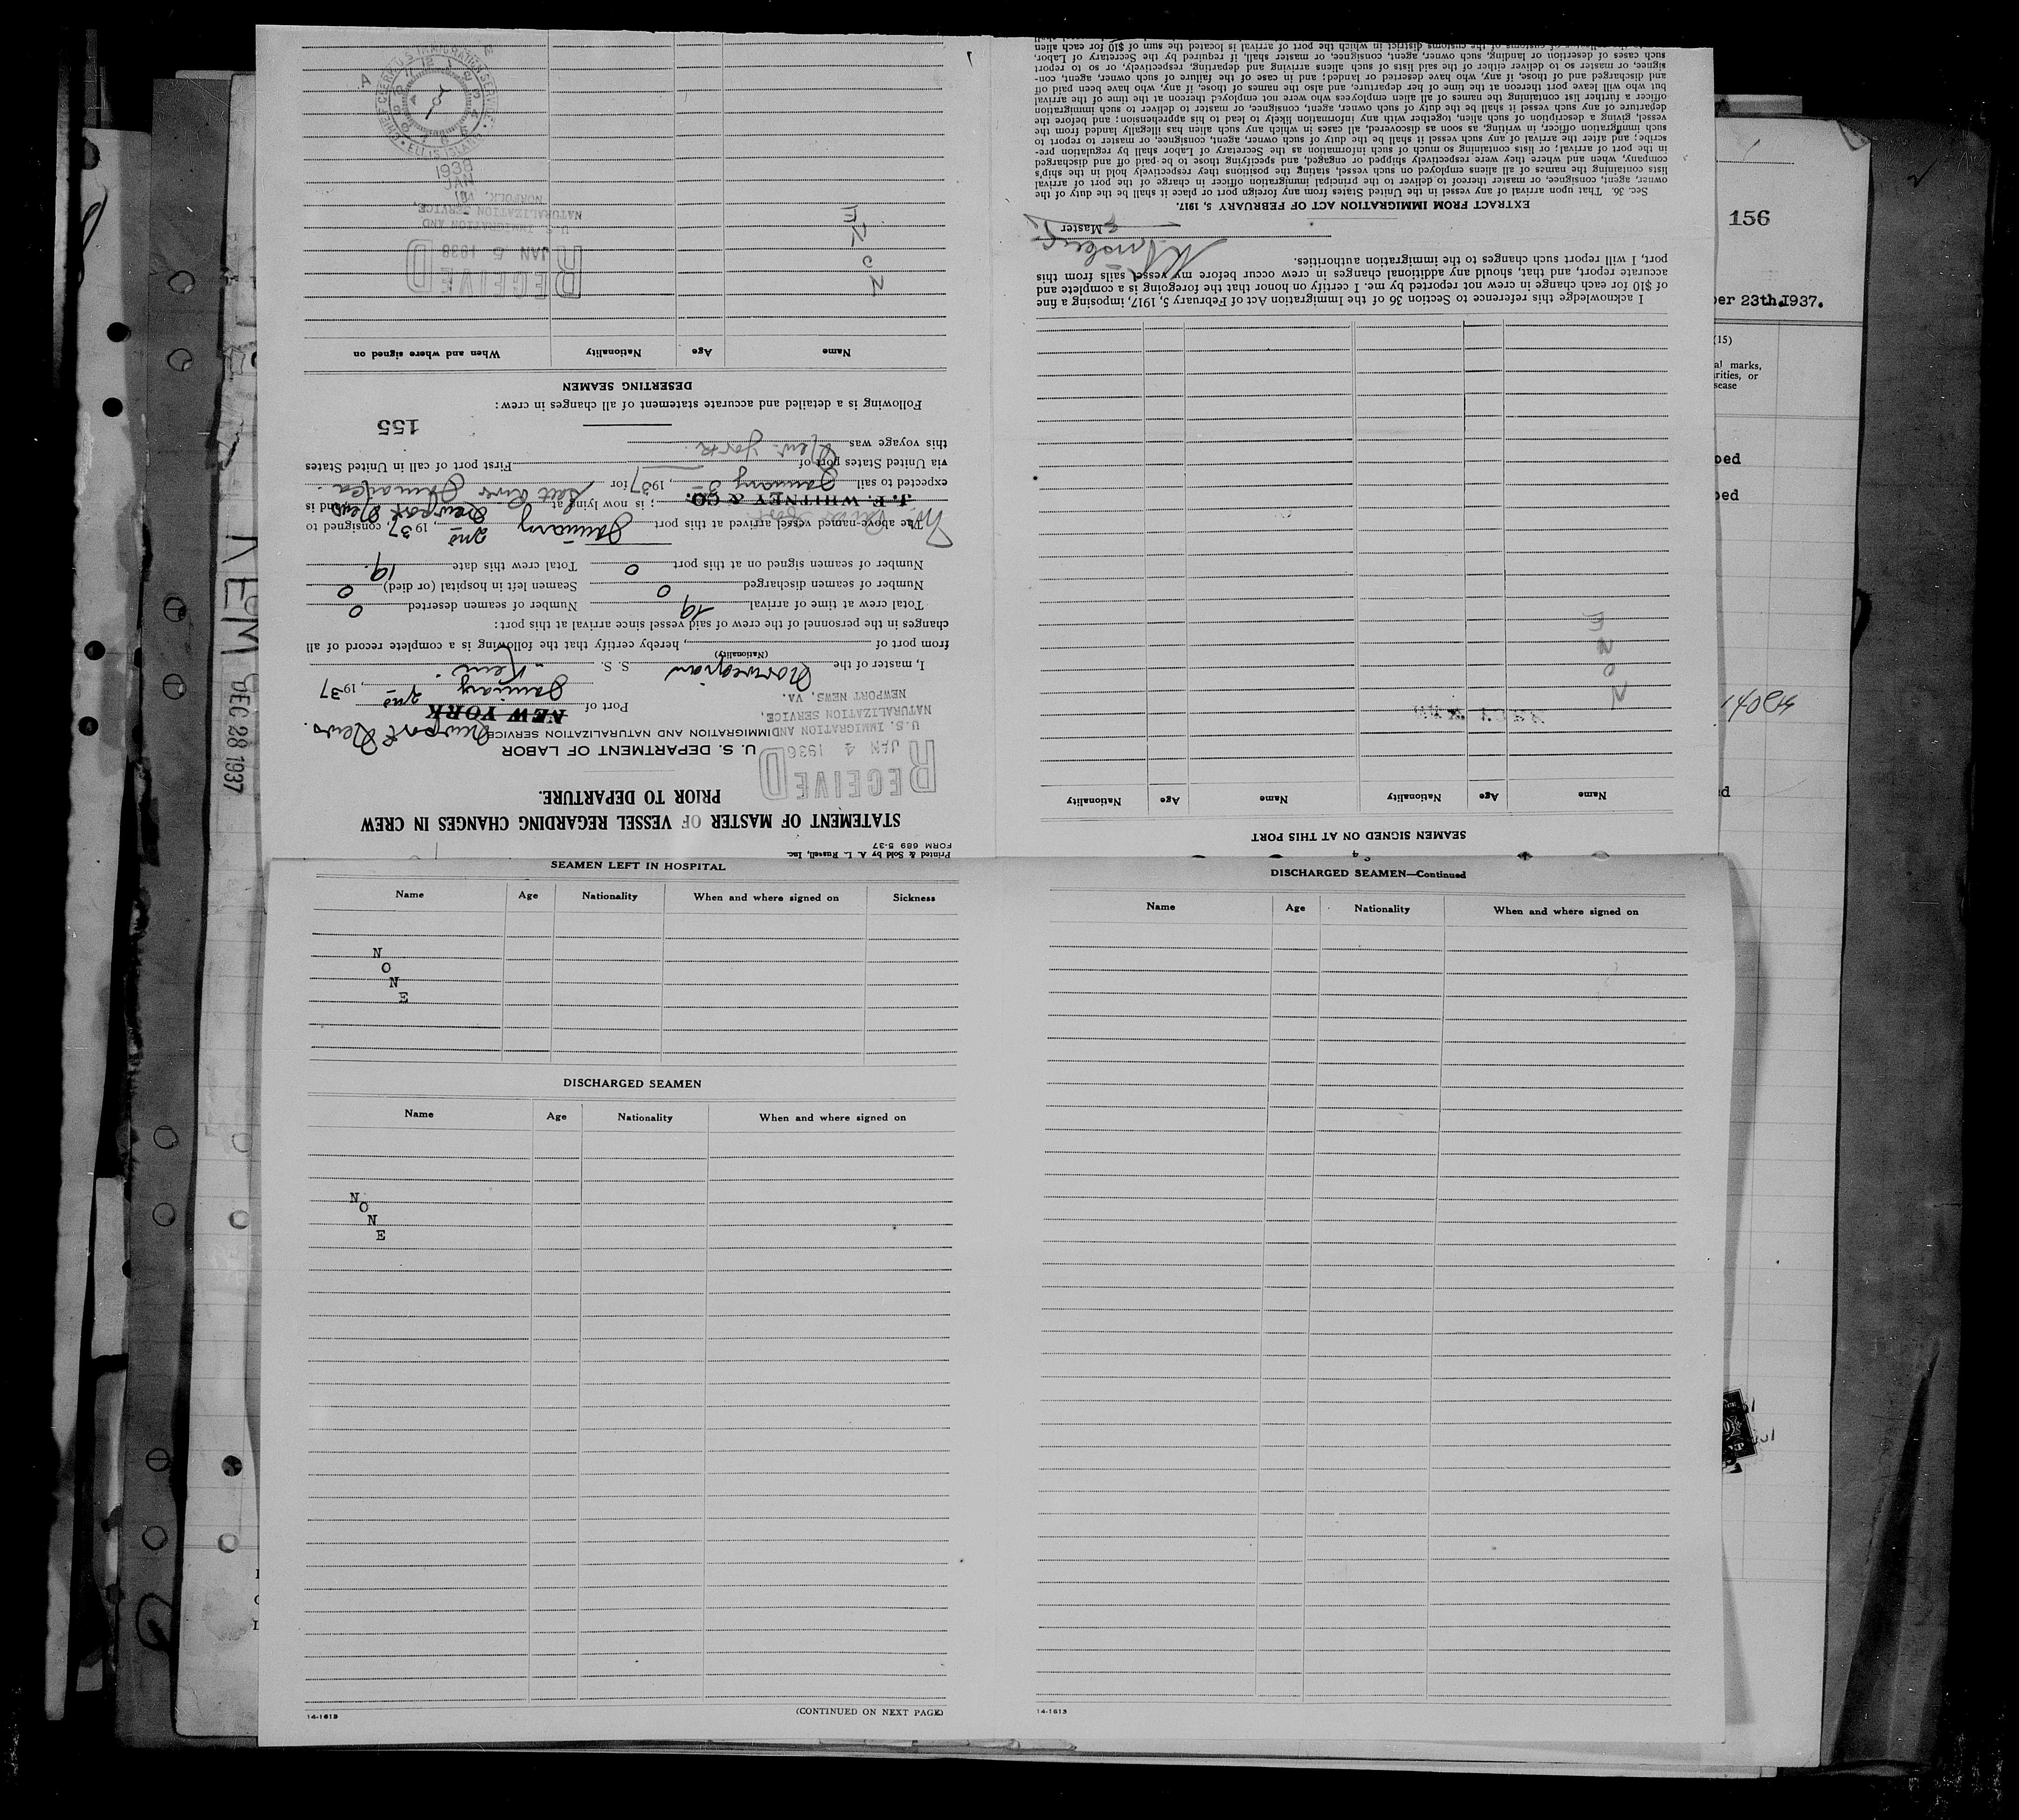 Printed & Sold by A. L. Russell, Inc.
FORM 689 5-37
STATEMENT OF MASTER OF VESSEL REGARDING CHANGES IN CREW
PRIOR TO DEPARTURE.
RECEIVED
JAN 4 1936
U. S. IMMIGRATION AND
NATURALIZATION SERVICE,
NEWPORT NEWS, VA.
U. S. DEPARTMENT OF LABOR
IMMIGRATION AND NATURALIZATION SERVICE
Newport News.
Port of NEW YORK
January 2nd, 1937
I, master of the Norwegian S. S. "Rein"
(Nationality)
from port of , hereby certify that the following is a complete record of all
changes in the personnel of the crew of said vessel since arrival at this port:
Total crew at time of arrival 19 Number of seamen deserted 0
Number of seamen discharged 0 Seamen left in hospital (or died) 0
Number of seamen signed on at this port 0 Total crew this date 19
The above-named vessel arrived at this port January 2nd, 1937, consigned to
J. F. WHITNEY & CO. ; is now lying at Newport News and is
expected to sail January 3, 1937 for
via United States port of First port of call in United States
this voyage was New York
155
Following is a detailed and accurate statement of all changes in crew:
DESERTING SEAMEN
Name Age Nationality When and where signed on
N
O
N
E
RECEIVED
JAN 5 1938
U.S. IMMIGRATION AND
NATURALIZATION SERVICE,
NORFOLK, VA.
1938
JAN
CHIEF CLERK U.S. IMMIGRATION SERVICE
ELLIS ISLAND
SEAMEN SIGNED ON AT THIS PORT
Name Age Nationality Name Age Nationality
N
O
N
E
I acknowledge this reference to Section 36 of the Immigration Act of February 5, 1917, imposing a fine
of $10 for each change in crew not reported by me. I certify on honor that the foregoing is a complete and
accurate report, and that, should any additional changes in crew occur before my vessel sails from this
port, I will report such changes to the immigration authorities.
Master
EXTRACT FROM IMMIGRATION ACT OF FEBRUARY 5, 1917.
Sec. 36. That upon arrival of any vessel in the United States from any foreign port or place it shall be the duty of the
owner, agent, consignee, or master thereof to deliver to the principal immigration officer in charge of the port of arrival
lists containing the names of all aliens employed on such vessel, stating the positions they respectively hold in the ship's
company, when and where they were respectively shipped or engaged, and specifying those to be paid off and discharged
in the port of arrival; or lists containing so much of such information as the Secretary of Labor shall by regulation pre-
scribe; and after the arrival of any such vessel it shall be the duty of such owner, agent, consignee, or master to report to
such immigration officer, in writing, as soon as discovered, all cases in which any such alien has illegally landed from the
vessel, giving a description of such alien, together with any information likely to lead to his apprehension; and before the
departure of any such vessel it shall be the duty of such owner, agent, consignee, or master to deliver to such immigration
officer a further list containing the names of all alien employees who were not employed thereon at the time of the arrival
but who will leave port thereon at the time of her departure, and also the names of those, if any, who have been paid off
and discharged and of those, if any, who have deserted or landed; and in case of the failure of such owner, agent, con-
signee, or master so to deliver either of the said lists of such aliens arriving and departing, respectively, or so to report
such cases of desertion or landing, such owner, agent, consignee, or master shall, if required by the Secretary of Labor,
customs of the customs district in which the port of arrival is located the sum of $10 for each alien
SEAMEN LEFT IN HOSPITAL
Name Age Nationality When and where signed on Sickness
N
O
N
E
DISCHARGED SEAMEN
Name Age Nationality When and where signed on
N
O
N
E
14-1613 (CONTINUED ON NEXT PAGE)
DISCHARGED SEAMEN—Continued
Name Age Nationality When and where signed on
14-1613
156
ber 23th.1937.
(15)
al marks,
rities, or
sease
ped
ped
DEC 28 1937